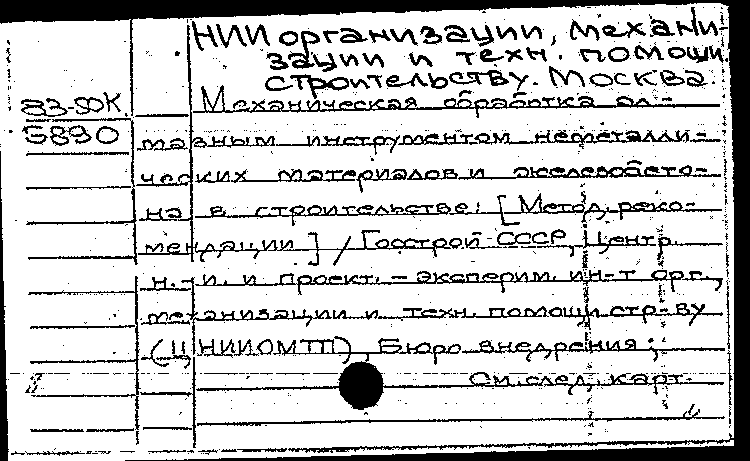 НИИ организации, механи-
зации и техн. помощи
строительству. Москва.
83-50К
5890
Механическая обработка ал-
мазным инструментом неметалли-
ческих материалов и железобето-
на в строительстве: [Метод. реко-
мендации] / Госстрой СССР, Центр.
н.-и. и проект.-эксперим. ин-т орг.,
механизации и техн. помощи стр-ву
(ЦНИИОМТП), Бюро внедрения;
См. след. карт.